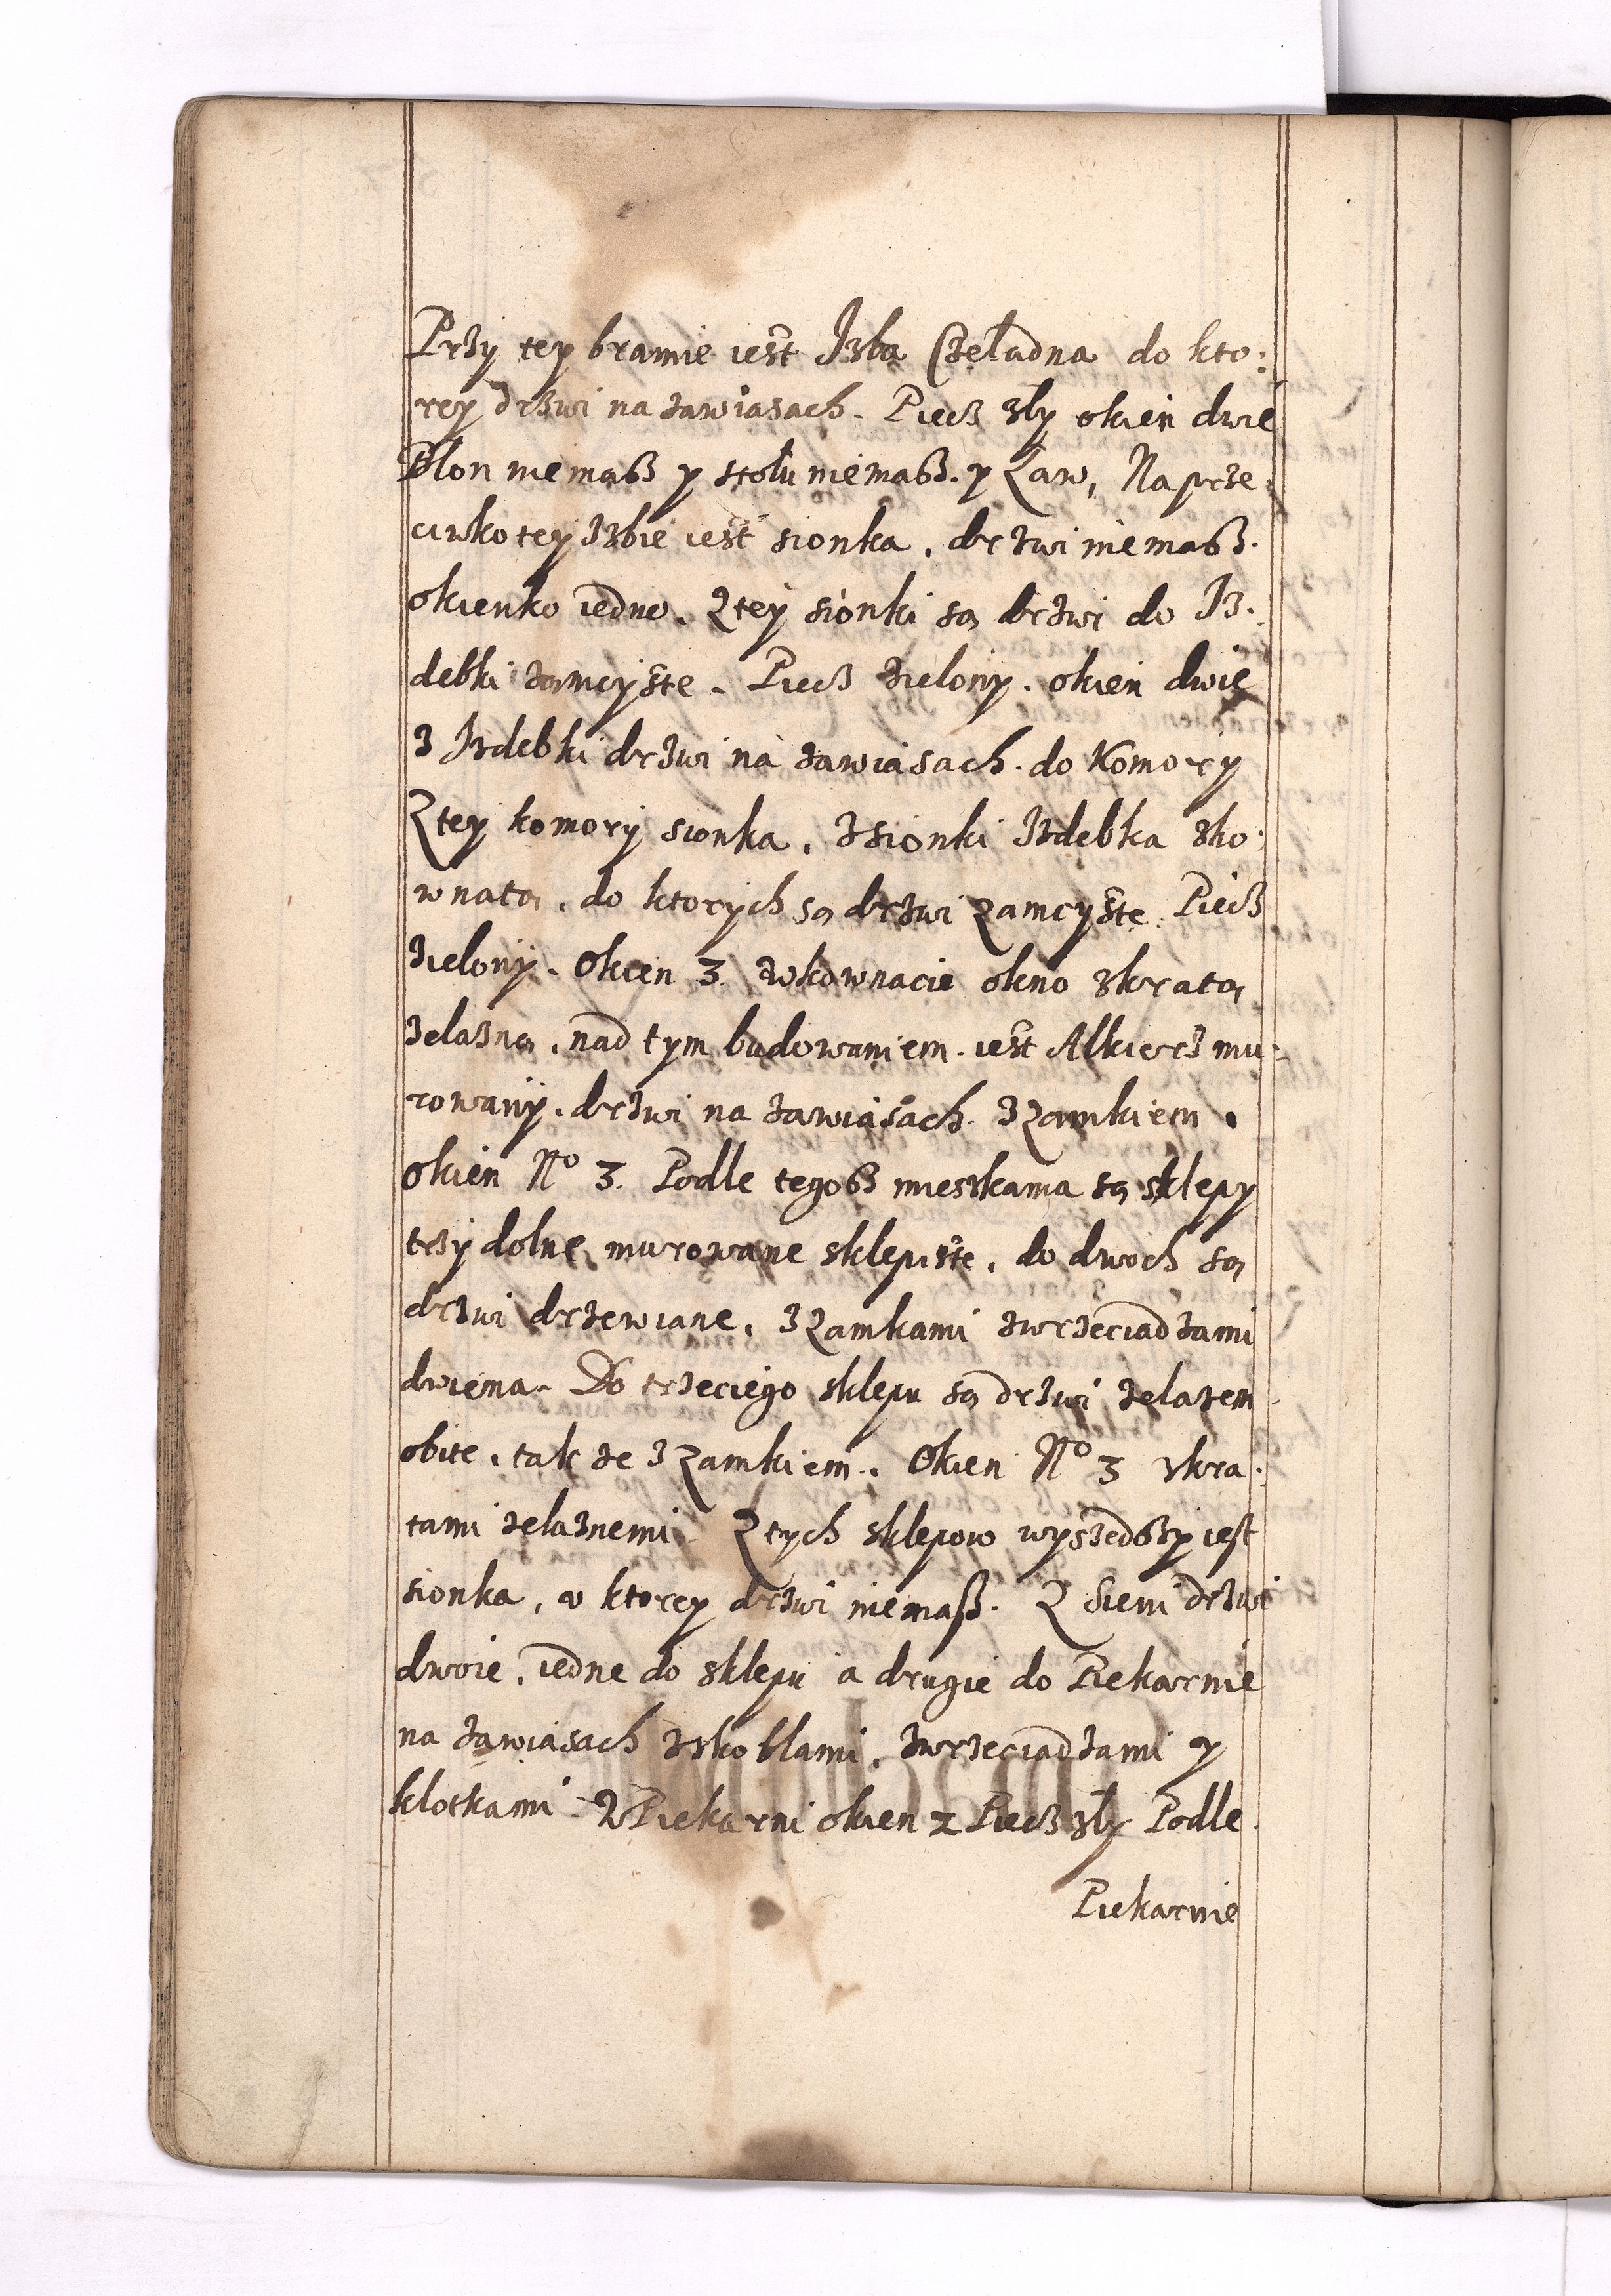 Przy tey bramie iest Izba Czeladna do kto:
rey drzwi na zawiasach. Piecz zły okien dwie
Błon niemasz y stołu niemasz. y Ław, Naprze
ciwko tey Izbie iest sionka. drzwi niemasz.
okienko iedno. Z tey sionki są drzwi do Iz.
debki zamczyste. Piecz zielony. okien dwie
z Izdebki drzwi na zawiasach. do Komory
Z tey komory sionka. z sionki Izdebka zko:
wnatą. do ktorych są drzwi zamcyste. Piecz
zielony. Okien 3. zwkownacie okno zkratą
zelazną. nad tym budowaniem. iest Alkierz mu:
rowany. drzwi na zawiasach. z zamkiem.
okien No 3. Podle tegosz mieszkania są sklepy
trzy dolne murowane sklepiste. do dwoch są
drzwi drzewiane. z zamkami zwrzeciadzami
dwiema. Do trzeciego sklepu są drzwi zelazem
obite. tak ze z zamkiem. Okien No 3 zkra:
tami zelaznemi. Z tych sklepow wyszedszy iest
sionka, v ktorey drzwi niemasz. Z Sieni drzwi
dwoie. iedne do sklepu a drugie do Piekarnie
na zawiasach zskoblami. zwrzeciadzami y
klotkami. W Piekarni okien 2 Piecz zły Podle
Piekarnie